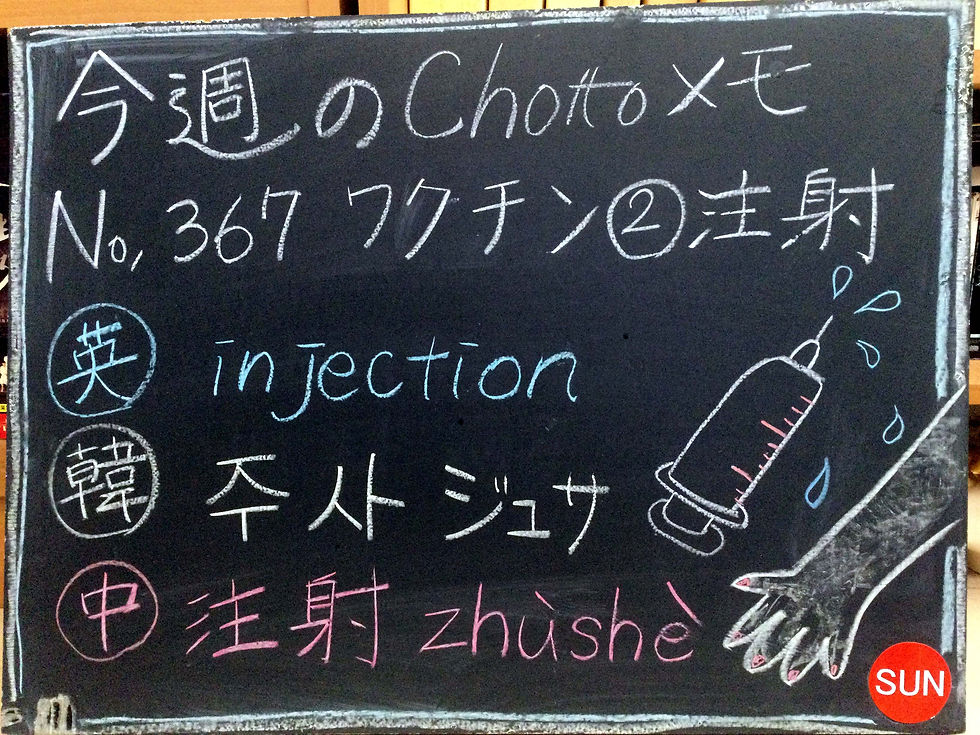 今週のChottoメモ
No. 367 ワクチン②注射
英 injection
韓 주사 ジュサ
中 注射 zhùshè
SUN